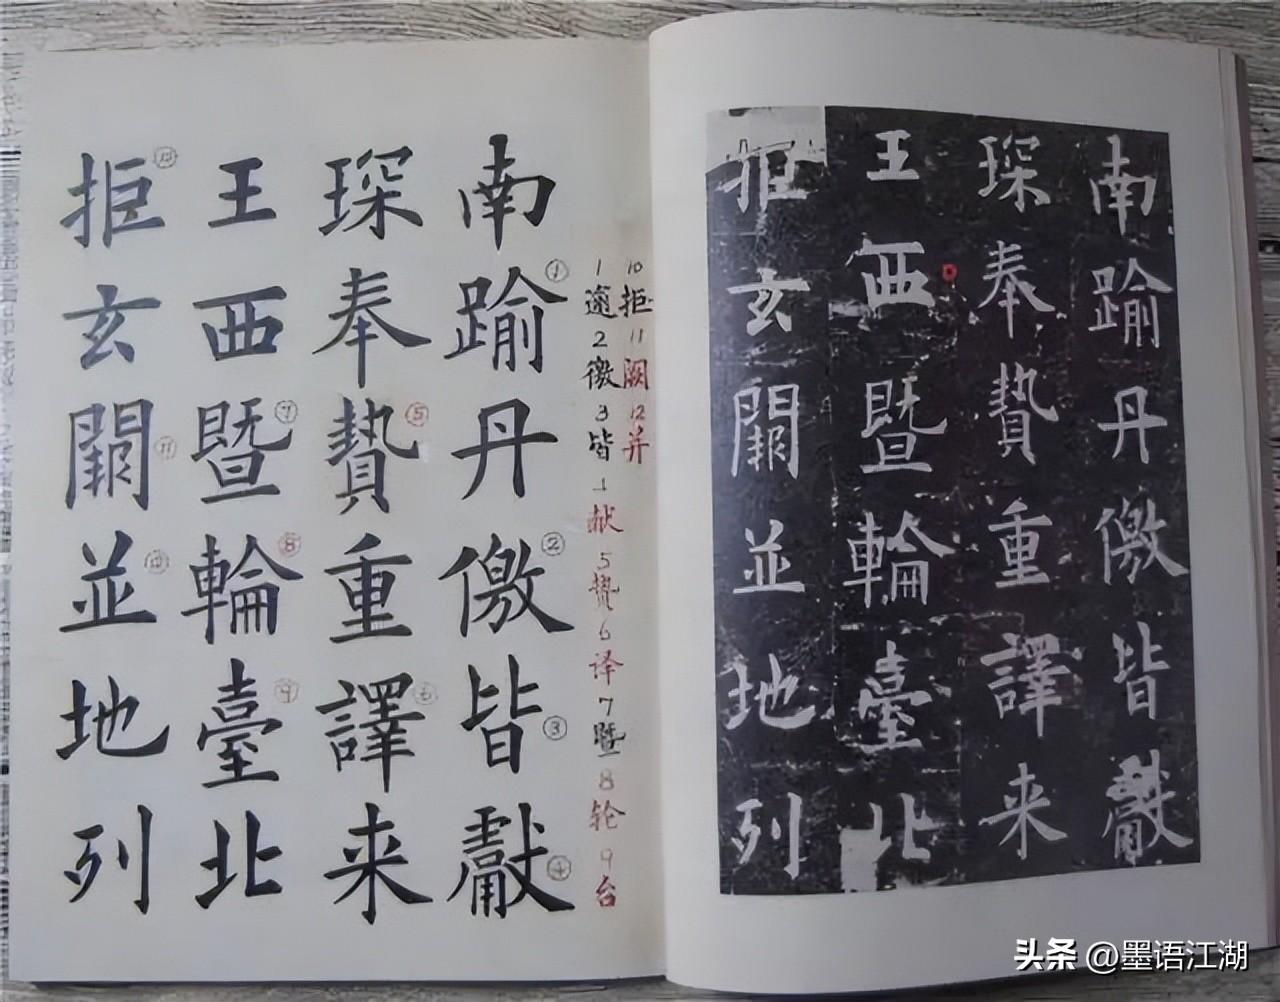 南踰①丹儌②皆③獻④
琛奉贄⑤重譯⑥来
王西暨⑦輪⑧臺⑨北
拒⑩玄闕⑪並⑫地列
2 徼 3 皆 4 献 5 贽 6 译 7 暨 8 轮 9 台
10 拒 11 阙 12 并
南踰丹儌皆獻
琛奉贄重譯来
王西暨輪臺北
拒玄闕並地列
头条 @墨语江湖